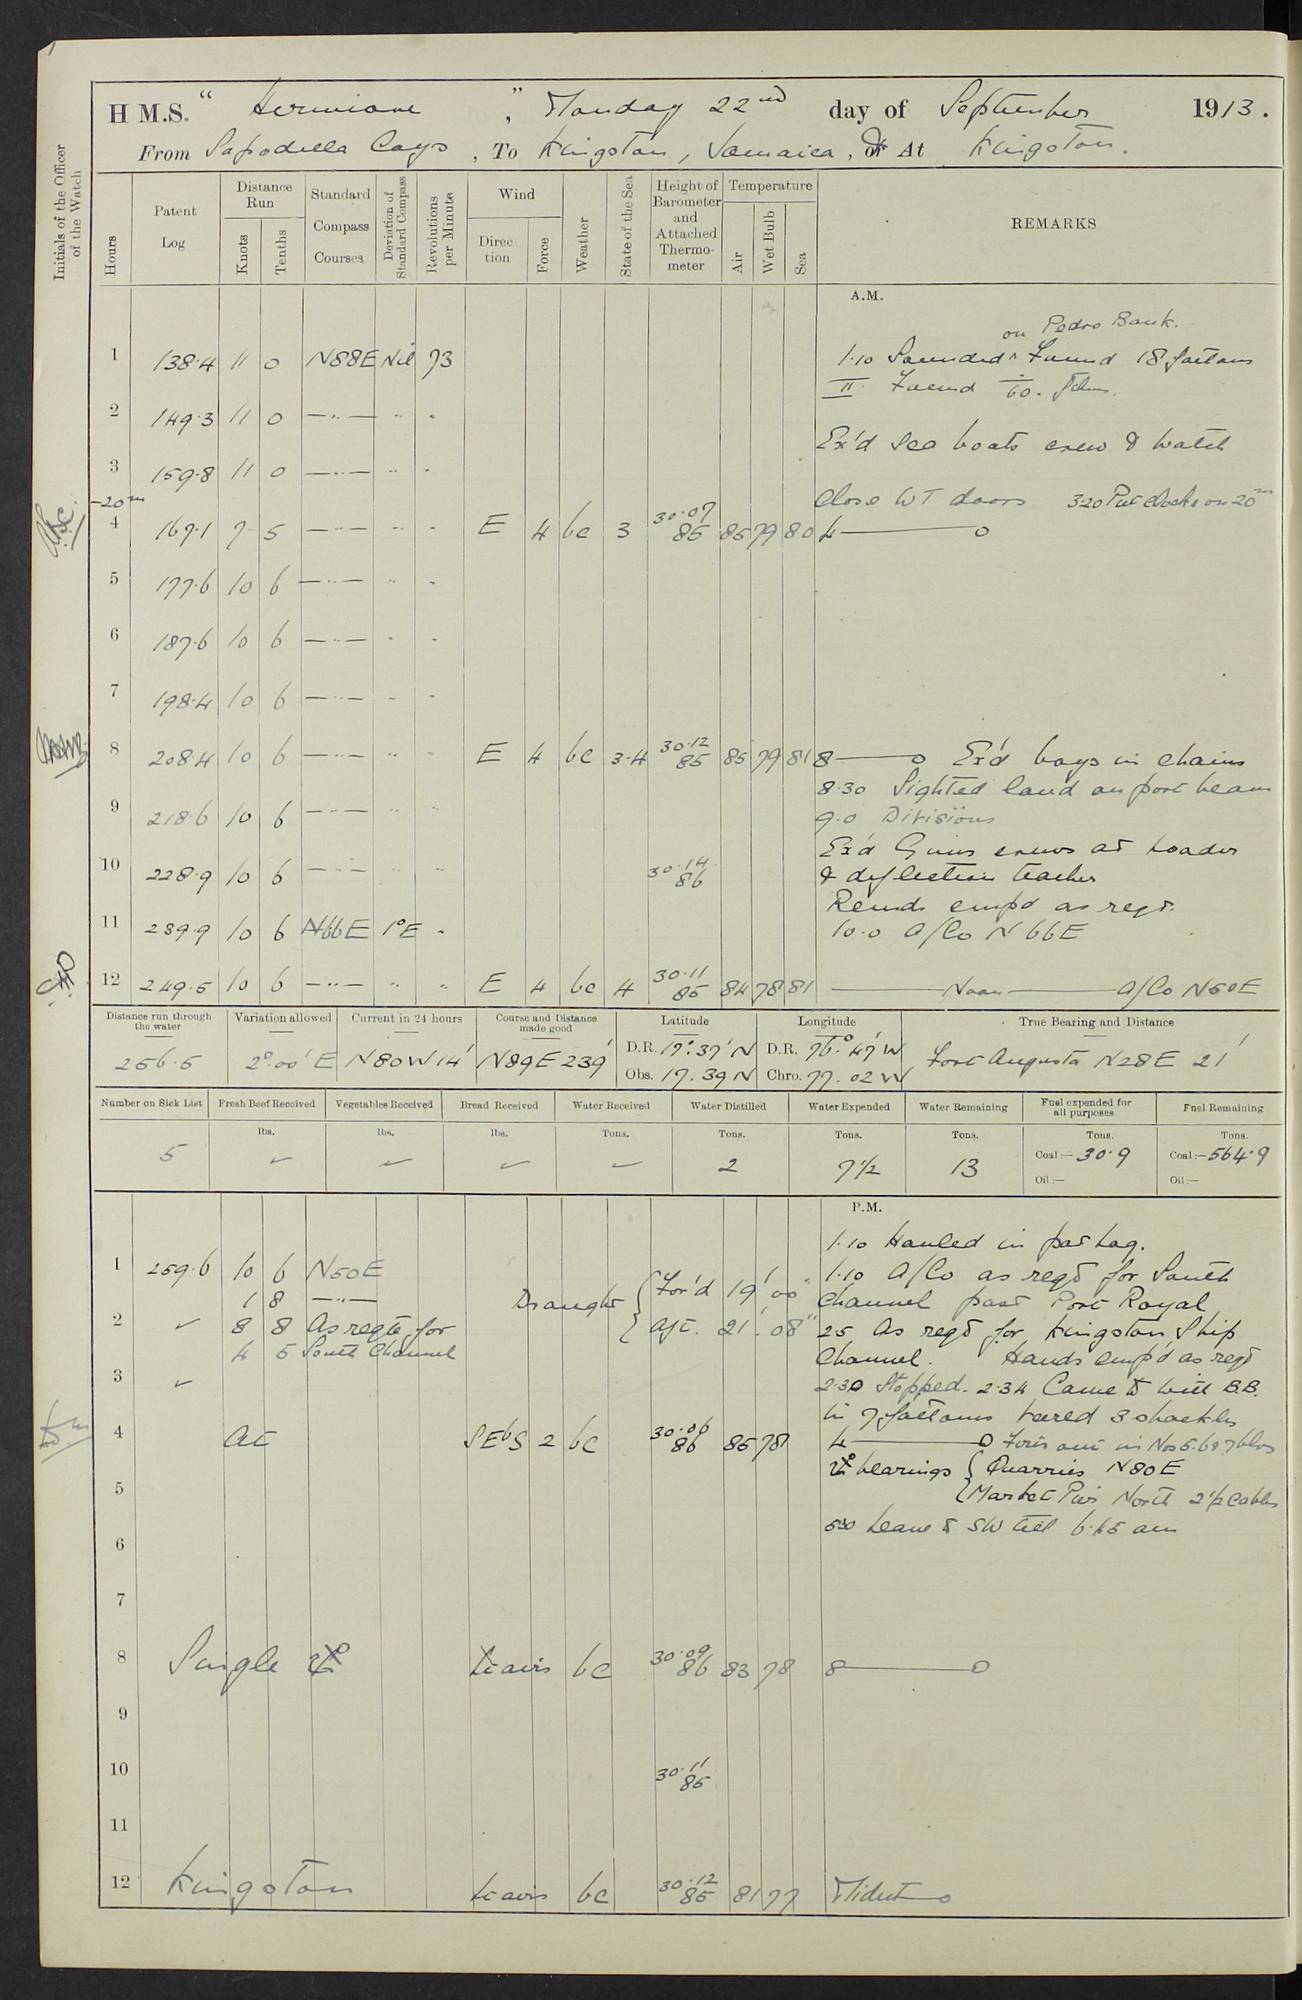 H M.S. “ Hermione ”, Monday 22nd day of September 1913.
From Sapodilla Cays, To Kingston, Jamaica, or At Kingston.
Initials of the Officer of the Watch
Hours
Patent Log
Distance Run
Knots
Tenths
Standard Compass Courses
Deviation of Standard Compass
Revolutions per Minute
Wind
Direction
Force
Weather
State of the Sea
Height of Barometer and Attached Thermometer
Temperature
Air
Wet Bulb
Sea
REMARKS
A.M.
on Pedro Bank.
1 138.4 11 0 N88E Nil 73 1.10 Sounded ^ Found 18 fatoms
II Found 60. fthms.
2 149.3 11 0 —"— " "
Ex'd Sea boats crew & watch
3 159.8 11 0 —"— " "
-20m Close WT doors 3.20 Put clocks on 20m
4 167.1 7 5 —"— " " E 4 bc 3 30.07 85 85 79 80 4 —— 0
5 177.6 10 6 —"— " "
6 187.6 10 6 —"— " "
7 198.4 10 6 —"— " "
8 208.4 10 6 —"— " " E 4 bc 3.4 30.12 85 85 79 81 8 —— 0 Ex'd boys in chains
8.30 Sighted land on port beam
9 218.6 10 6 —"— " " 9.0 Divisions
Ex'd Guns crews at loader
10 228.9 10 6 —"— " " 30.14 86 & deflection teacher
Remdr emp'd as reqd.
11 239.9 10 6 N66E 1°E " 10.0 A/Co N66E
12 249.5 10 6 —"— " " E 4 bc 4 30.11 85 84 78 81 —— Noon —— A/Co N50E
Distance run through the water
256.5
Variation allowed
2°.00' E
Current in 24 hours
N80W 14'
Course and Distance made good
N89E 239'
Latitude
D.R. 17°.37' N
Obs. 17.39 N
Longitude
D.R. 76°.47' W
Chro. 77.02 W
True Bearing and Distance
Fort Augusta N28E 21'
Number on Sick List
5
Fresh Beef Received
lbs.
✓
Vegetables Received
lbs.
✓
Bread Received
lbs.
✓
Water Received
Tons.
✓
Water Distilled
Tons.
2
Water Expended
Tons.
7½
Water Remaining
Tons.
13
Fuel expended for all purposes
Tons.
Coal:— 30.9
Oil:—
Fuel Remaining
Tons.
Coal:— 564.9
Oil:—
P.M.
1.10 Hauled in pat log.
1 259.6 10 6 N50E 1.10 A/Co as reqd for South
1 8 —"— Draught { For'd 19' 00" Channel past Port Royal
2 ✓ 8 8 As reqte for Aft. 21' 08" 25 As reqd for Kingston Ship
4 5 South Channel Channel. Hands emp'd as reqd
3 ✓ 2.30 Stopped. 2.34 Came to with B.B.
in 7 fathoms veered 3 shackles
4 At SEbS 2 bc 30.06 86 85 78 4 —— 0 Fires out in Nos 5.6 & 7 blrs
bearings { Quarries N80E
5 { Market Pier North 2½ Cables
530 Leave to SW till 6.45 am
6
7
8 Single ⚓ bc 30.09 86 83 78 8 —— 0
9
10 30.11 85
11
12 Kingston bc 30.12 85 81 77 Midnt —— 0